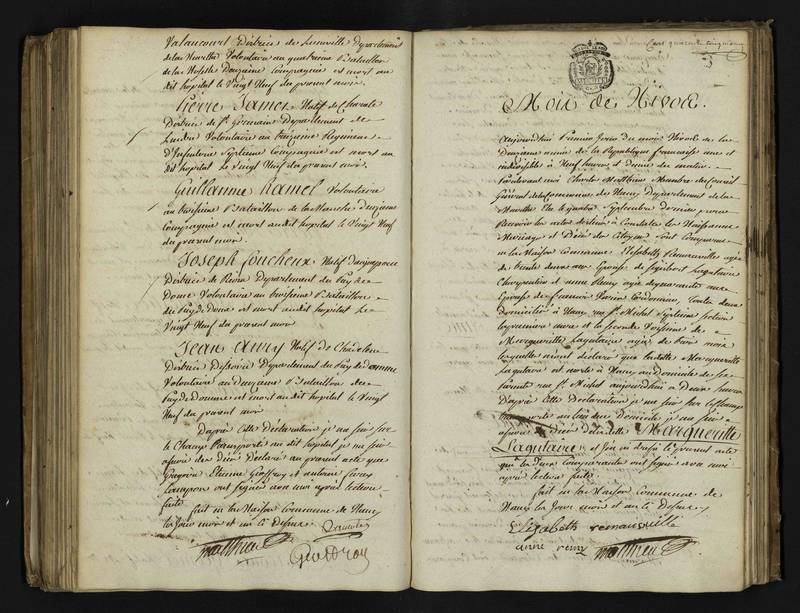 Valaucourt District de Luneville Departement
de la Meurthe Volontaire au quatrieme Bataillon
de la Moselle Douzieme Compagnie est mort au
dit hopital le Vingt Neuf du present mois
Pierre James Natif de
District de St Germain Departement de
Volontaire au Regiment
d'Infanterie Septieme Compagnie est mort au
dit hopital le Vingt Neuf du present mois.
Guillaume Hamel Volontaire
au troisieme Bataillon de la Manche
Compagnie est mort audit hopital le Vingt Neuf
du present mois
Joseph Foucheux Natif
District de Riom Departement du Puy de
Dome Volontaire au troisieme Bataillon
du Puy de Dome est mort audit hopital le
Vingt Neuf du present mois
Jean Aury Natif de
District Departement du Puy de Domme
Volontaire au Bataillon du
Puy de Domme est mort audit hopital le Vingt
Neuf du present mois
Dapres Cette Declaration je me suis sur
le Champ Transporté au dit hopital je me suis
assuré des Deces Declaré au present acte que
Etienne Geoffroy et antoine
ont signés avec moi apres lecture
faite
fait en la Maison Commune de Nancy
les Jour mois et an Ci Dessus
Matthieu
Geoffroy
Mois de Nivose.
Aujourdhui Premier Jour du mois Nivose de la
Deuxieme année de la Republique francaise une et
indivisible à Neuf heures et demie du matin.
Pardevant moi Charles Matthieu Membre du Conseil
General de la Commune de Nancy Departement de la
Meurthe Elu le quatre Septembre dernier pour
Recevoir les actes destinés à Constater les Naissances
Mariages et Deces des Citoyens Sont Comparues
en la Maison Commune Elisabeth Remauville agée
de trente deux ans Epouse de Lagutaire
Charpentier et anne Remy agée de quarante ans
Epouse de francois Cordonnier, toutes deux
domiciliées à Nancy rue St Michel
la premiere mere et la seconde Voisine de
Margueritte Lagutaire agée de trois mois
lesquelles m'ont declaré que ladite Margueritte
Lagutaire est morte à Nancy au Domicile de ses
Parents rue St Michel aujourdhui à Deux heures
Dapres Cette Declaration je me suis sur le champ
transporté au lieu du Domicile je me suis
assuré du Deces de ladite Margueritte
Lagutaire et j'en ai dressé le present acte
que les Deux Comparantes ont signé avec moi
apres lecture faite
fait en la Maison Commune de
Nancy les Jour mois et an Ci Dessus
Elizabeth remauville
anne remy Matthieu